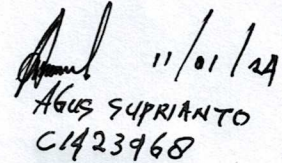 11/01/24
AGUS SUPRIANTO
C1423968